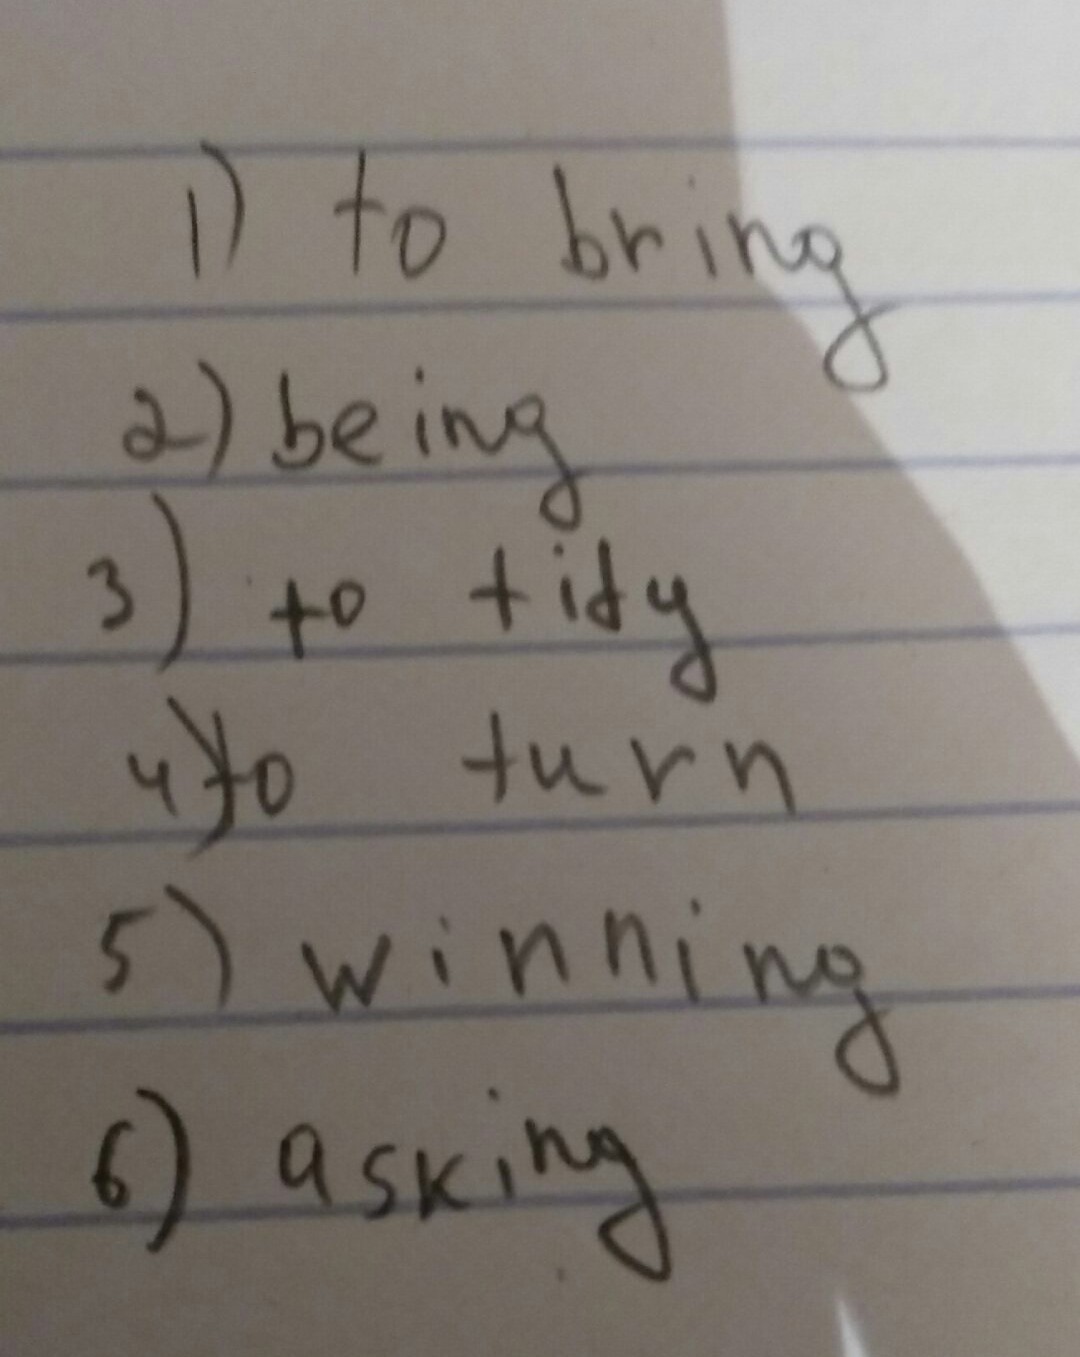 1) to bring
2) being
3) to tidy
4) to turn
5) winning
6) asking